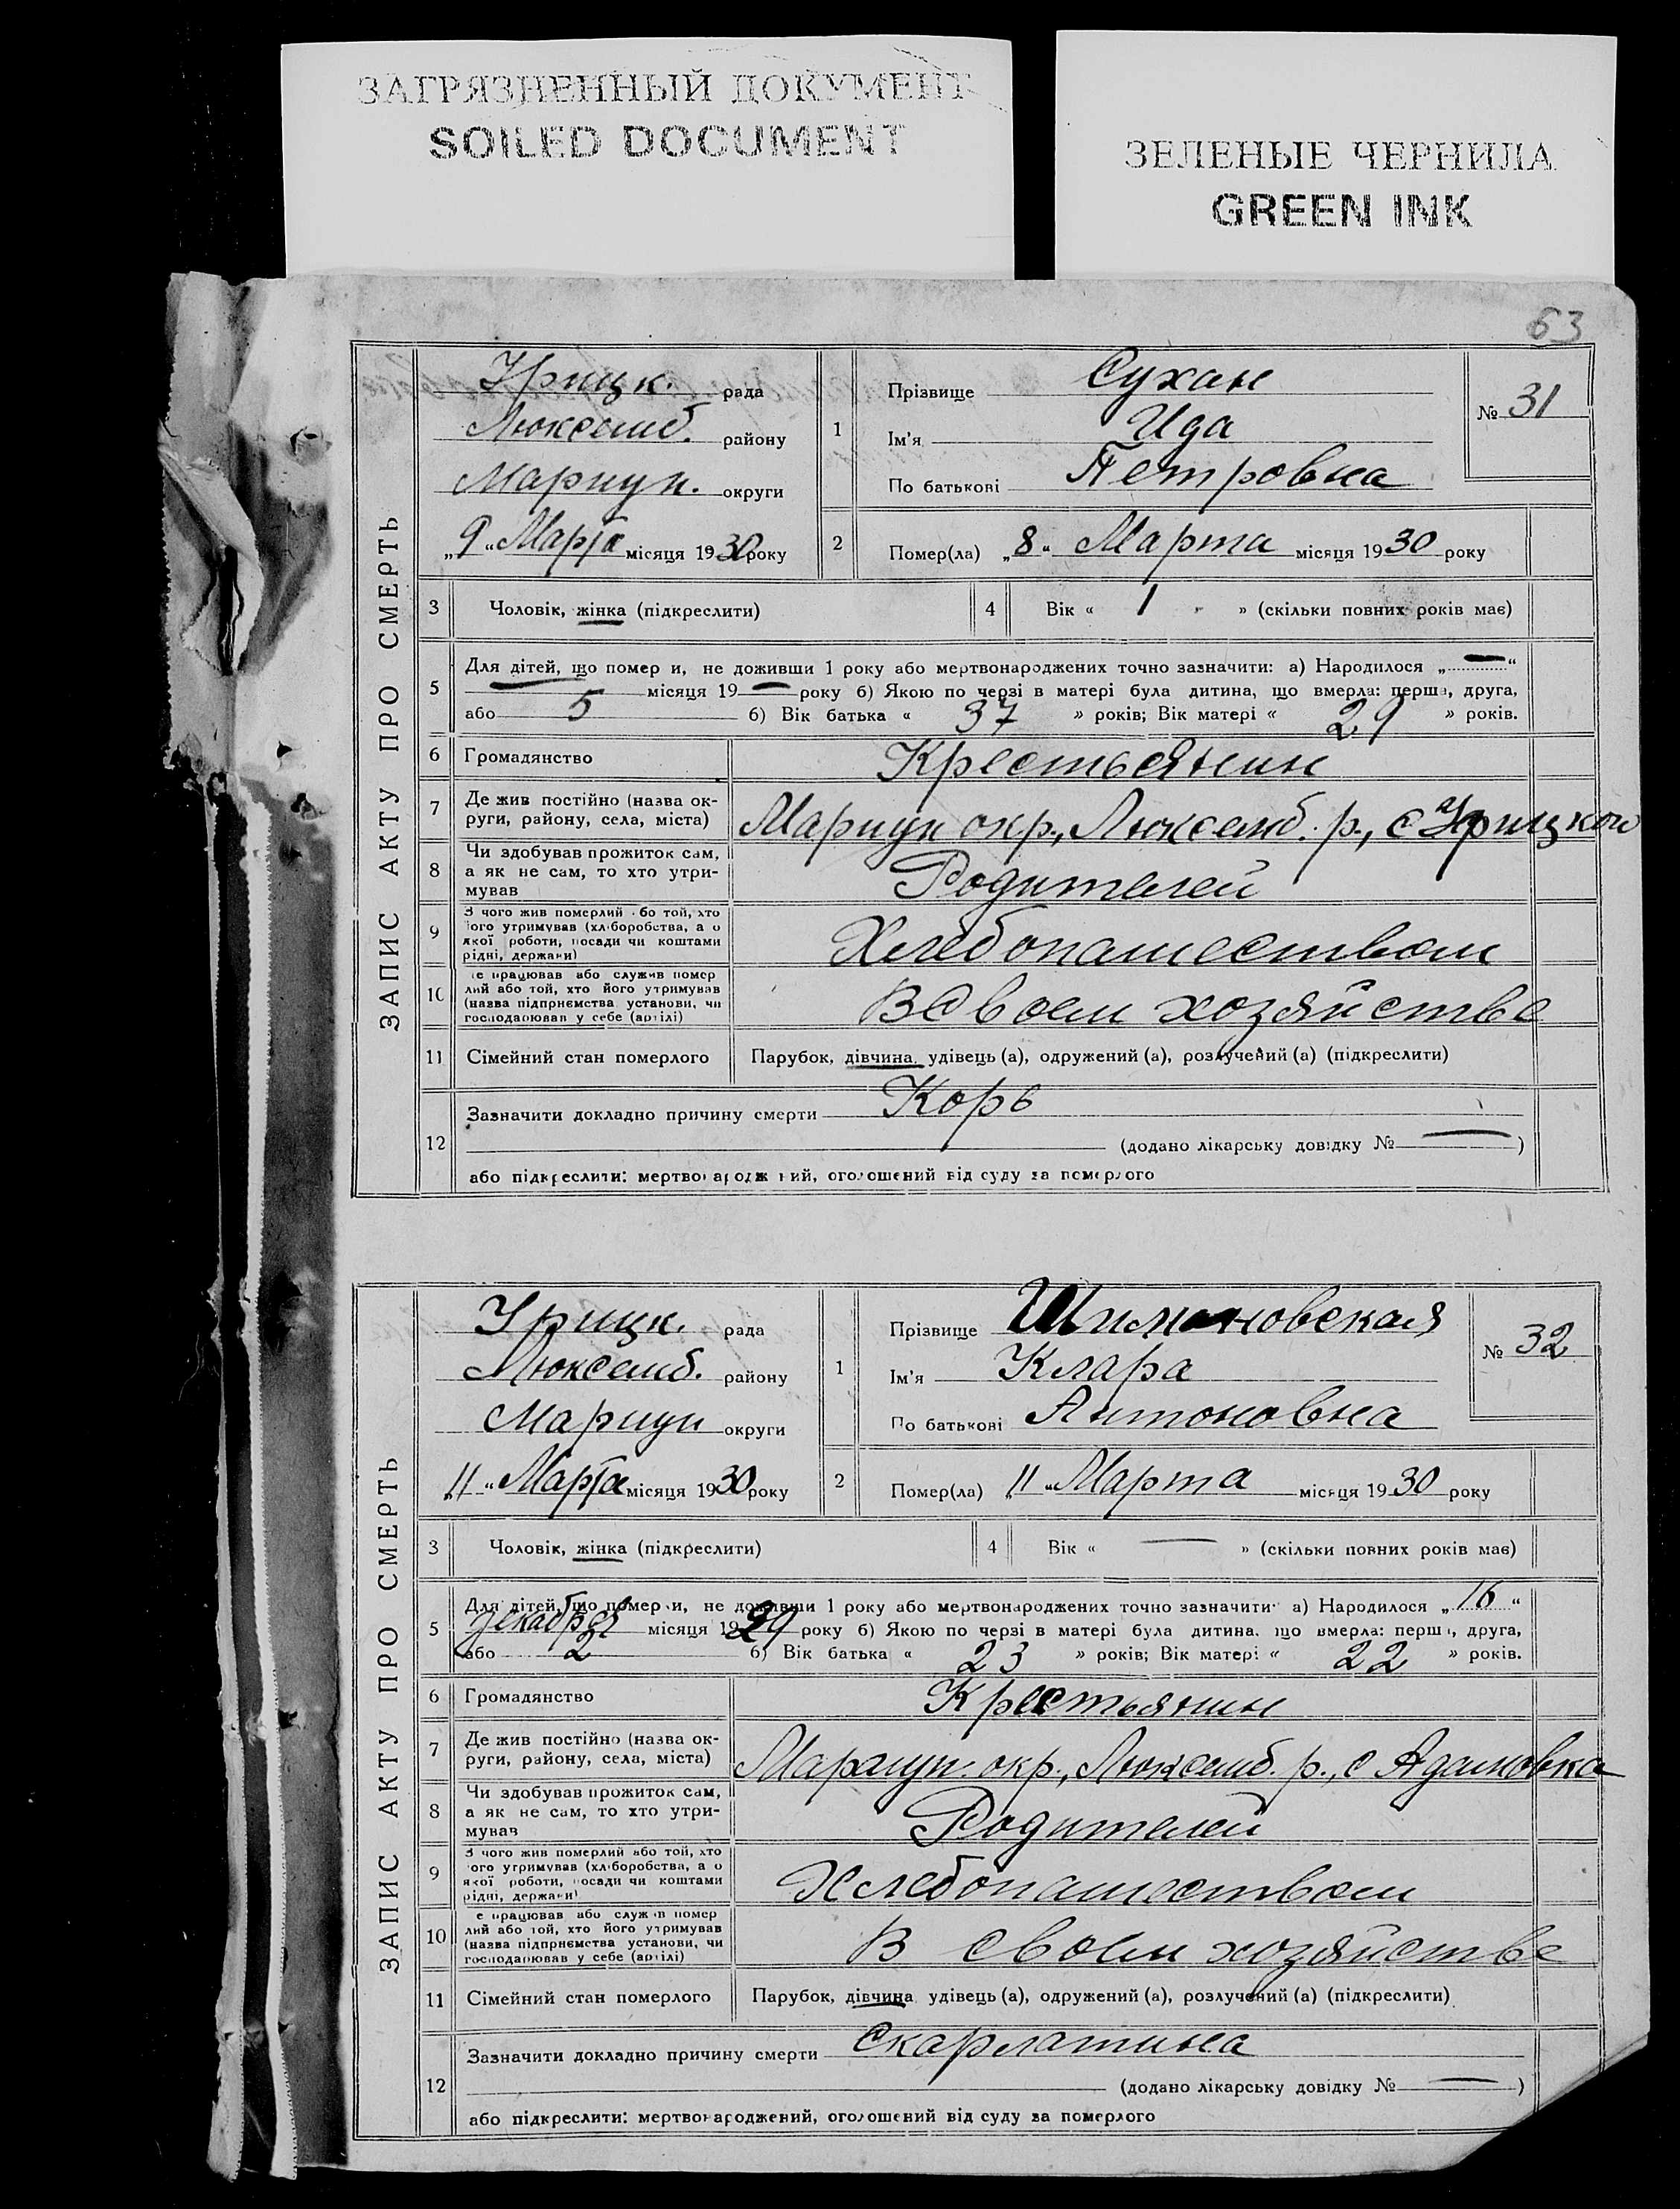 ЗАГРЯЗНЕННЫЙ ДОКУМЕНТ
SOILED DOCUMENT
ЗЕЛЕНЫЕ ЧЕРНИЛА
GREEN INK
63
ЗАПИС АКТУ ПРО СМЕРТЬ
Урицк. рада
Люксемб. району
Мариуп. округи
„9" Марта місяця 1930 року
1
Прізвище Сухан
Ім'я Ида
По батькові Петровна
№ 31
2
Помер(ла) „8" Марта місяця 1930 року
3 Чоловік, жінка (підкреслити)
4 Вік « 1 » (скільки повних років має)
5
Для дітей, що помер и, не доживши 1 року або мертвонароджених точно зазначити: а) Народилося „—"
— місяця 19— року б) Якою по черзі в матері була дитина, що вмерла: перша, друга,
або 5 б) Вік батька « 37 » років; Вік матері « 29 » років.
6 Громадянство Крестьянин
7 Де жив постійно (назва ок-
руги, району, села, міста) Мариуп окр., Люксемб. р., с Урицкое
8 Чи здобував прожиток сам,
а як не сам, то хто утри-
мував Родителей
9 З чого жив померлий бо той, хто
його утримував (хліборобства, а о
якої роботи, посади чи коштами
рідні, держави) Хлебопашеством
10 е працював або служив помер
лий або той, хто його утримував
(назва підприємства установи, чи
господарював у себе (артілі) В своем хозяйстве
11 Сімейний стан померлого Парубок, дівчина, удівець (а), одружений (а), розлучений (а) (підкреслити)
12
Зазначити докладно причину смерти Корь
(додано лікарську довідку № — )
або підкреслити: мертвонароджений, оголошений від суду за померлого
ЗАПИС АКТУ ПРО СМЕРТЬ
Урицк. рада
Люксемб. району
Мариуп округи
„11" Марта місяця 1930 року
1
Прізвище Шимановская
Ім'я Клара
По батькові Антоновна
№ 32
2
Помер(ла) „11" Марта місяця 1930 року
3 Чоловік, жінка (підкреслити)
4 Вік « — » (скільки повних років має)
5
Для дітей, що помер и, не доживши 1 року або мертвонароджених точно зазначити: а) Народилося „16"
декабря місяця 1929 року б) Якою по черзі в матері була дитина, що вмерла: перша, друга,
або 2 б) Вік батька « 23 » років; Вік матері « 22 » років.
6 Громадянство Крестьянин
7 Де жив постійно (назва ок-
руги, району, села, міста) Мариуп. окр., Люксемб. р., с Адамовка
8 Чи здобував прожиток сам,
а як не сам, то хто утри-
мував Родителей
9 З чого жив померлий або той, хто
ого утримував (хліборобства, а о
якої роботи, посади чи коштами
рідні, держави) Хлебопашеством
10 е працював або служив помер
лий або той, хто його утримував
(назва підприємства установи, чи
господарював у себе (артілі) В своем хозяйстве
11 Сімейний стан померлого Парубок, дівчина удівець (а), одружений (а), розлучений (а) (підкреслити)
12
Зазначити докладно причину смерти Скарлатина
(додано лікарську довідку № — )
або підкреслити: мертвонароджений, оголошений від суду за померлого